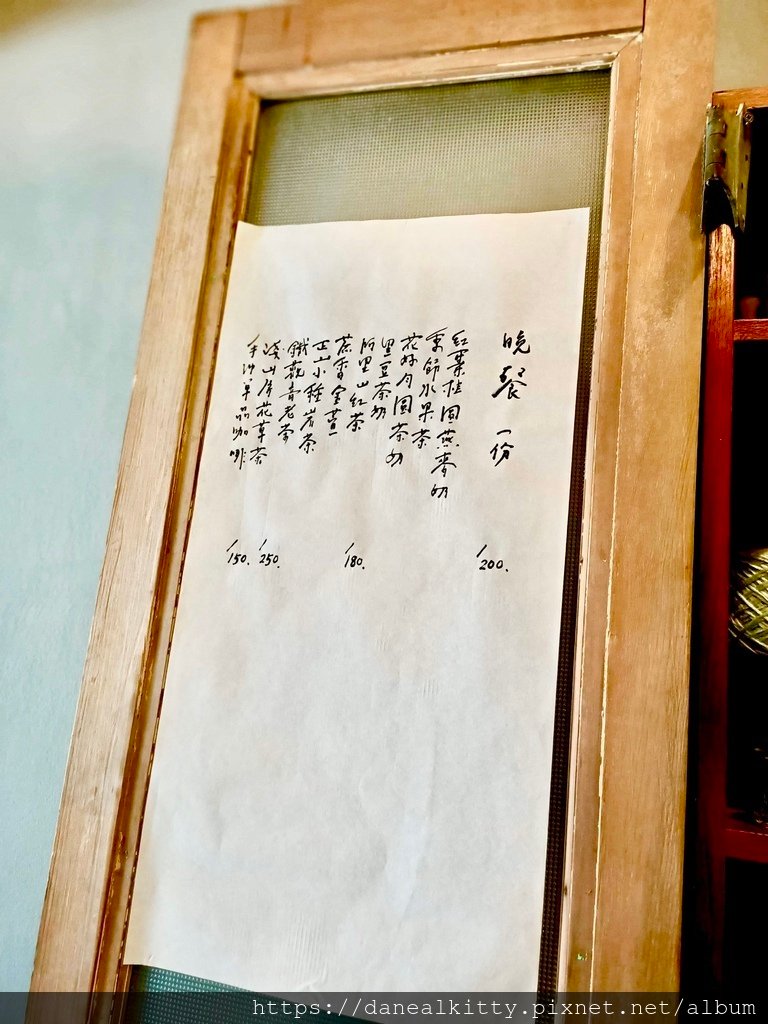 晚餐 一份
/200.
紅棗桂圓燕麥奶
季節水果茶
花好月圓茶奶
黑豆茶奶
阿里山紅茶
蔗香金萱
正山小種岩茶
鐵觀音老茶
淺山房花草茶
手沖單品咖啡
/180.
/250.
/150.
https://danealkitty.pixnet.net/album